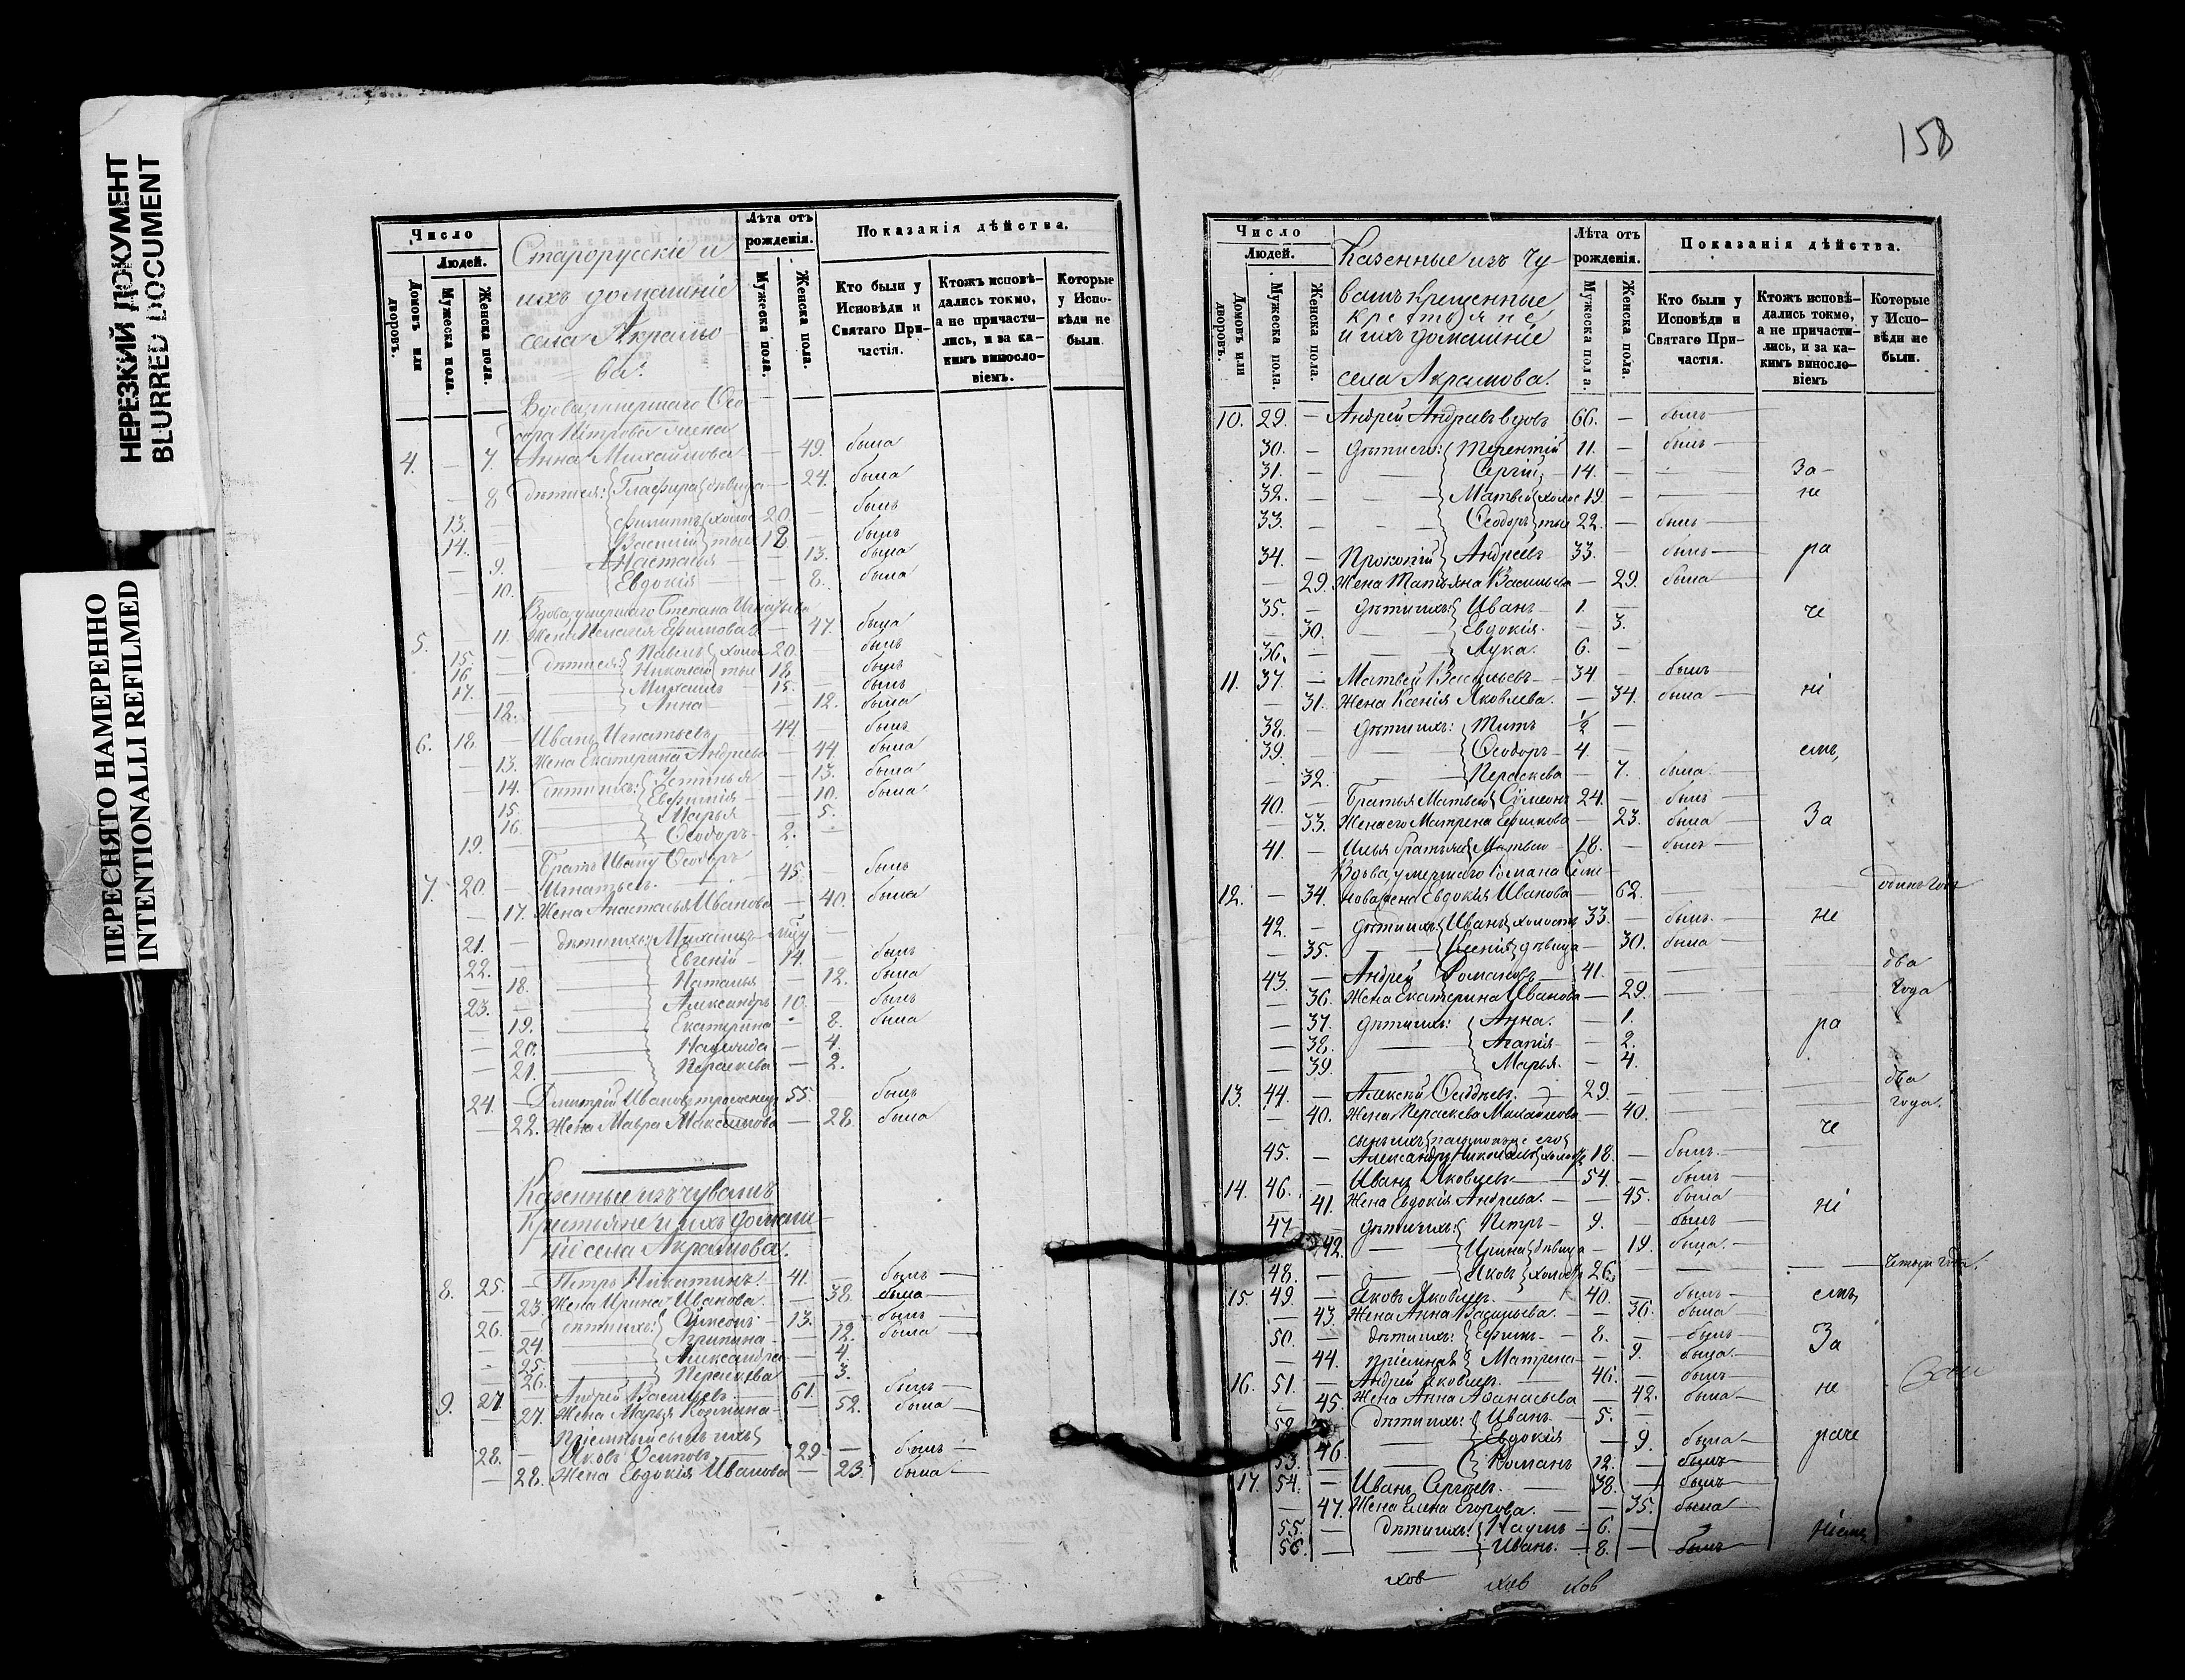 НЕРЕЗКИЙ ДОКУМЕНТ
BLURRED DOCUMENT
ПЕРЕСНЯТО НАМЕРЕННО
INTENTIONALLI REFILMED
Число
Людей.
Домовъ или дворовъ.
Мужеска пола.
Женска пола.
Старорусскіе и
ихъ домашніе
села Акрамо-
ва.
Лѣта отъ рожденія.
Мужеска пола.
Женска пола.
Показанія дѣйства.
Кто были у Исповѣди и Святаго Причастія.
Ктожъ исповѣдались токмо, а не причастились, и за какимъ винословіемъ.
Которые у Исповѣди не были.
Вдова умершаго Ѳео
дора Петрова жена
4. — 7. Анна Михайлова — 49. была
— 8. дѣти ея: Глафира дѣвица — 24. была
13. — Филиппъ холос 20. — былъ
14. — Василій тые 18 — былъ
— 9. Анастасья — 13. была
— 10. Евдокія — 8. была
Вдова умершаго Степана Игнатьева
5. — 11. жена Пелагія Ефимова — 47. была
15. — дѣти ея: Павелъ холос 20. — былъ
16. — Николай тые 18. — былъ
17. — Михаилъ 15. — былъ
— 12. Анна — 12. была
6. 18. — Иванъ Игнатьевъ 44 — былъ
— 13. Жена Екатерина Андреева — 44. была
— 14. дѣти ихъ: Устинья — 13. была
— 15. Евфимія — 10. была
— 16. Марья — 5.
19. — Ѳеодоръ 2. —
Братъ Ивану Ѳеодоръ
7. 20. — Игнатьевъ. 45. — былъ
— 17. Жена Анастасья Иванова — 40. была
21. — дѣти ихъ: Михаилъ
22. — Евгеній 14. — былъ
— 18. Наталья — 12. была
23. — Александръ 10. — былъ
— 19. Екатерина — 8. была
— 20. — 4.
— 21. Пераскева — 2.
24. — Дмитрій Ивановъ 55. — былъ
— 22. Жена Мавра Максимова — 28. была
Казенные изъ чувашъ
Крестьяне и ихъ домаш-
ніе села Акрамова.
8. 25. — Петръ Никитинъ. 41. — былъ
— 23. Жена Ирина Иванова. — 38. была
26. — дѣти ихъ: Симеонъ 13. — былъ
— 24. Агрипина — 12. была
— 25. Александра — 4.
— 26. Пераскева — 3.
9. 27. — Андрей Васильевъ 61. — былъ
— 27. Жена Марья Козмина — 52. была
Пріемный сынъ ихъ
28. — Яковъ Осиповъ 29 — былъ
— 28. Жена Евдокія Иванова — 23. была
158
Число
Людей.
Домовъ или дворовъ.
Мужеска пола.
Женска пола.
Казенные изъ Чу-
вашъ крещенные
крестьяне
и ихъ домашніе
села Акрамова.
Лѣта отъ рожденія.
Мужеска пола.
Женска пола.
Показанія дѣйства.
Кто были у Исповѣди и Святаго Причастія.
Ктожъ исповѣдались токмо, а не причастились, и за какимъ винословіемъ
Которые у Исповѣди не были.
10. 29. — Андрей Андреевъ вдовъ 66. — былъ
30. — дѣти его: Терентій 11. — былъ
31. — Сергій 14. — За-
32. — Матвей холос 19. — не
33. — Ѳеодоръ тые 22. — былъ
34. — Прокопій Андреевъ 33. — былъ ра
— 29. Жена Татьяна Васильева — 29. была
35. — дѣти ихъ: Иванъ 1. — че
— 30. Евдокія. — 3.
36. — Лука. 6. —
11. 37. — Матвей Васильевъ 34 — былъ
— 31. Жена Ксенія Яковлева. — 34. была ні
38. — дѣти ихъ: Титъ 1/2 —
39. — Ѳеодоръ 4. — емъ,
— 32. Пераскева — 7. была.
40. — Братья Матвею Сѵмеонъ 24. — былъ
— 33. Жена его Матрена Ефимова — 23. была За
41. — Илья братъ же Матвею 18. — былъ
Вдова умершаго Романа Семе-
12. — 34. нова жена Евдокія Иванова — 62. одинъ годъ
42. — дѣти ихъ: Иванъ холостъ 33. — былъ. не
— 35. Ксенія дѣвица — 30. была
43. — Андрей Романовъ 41. — два
— 36. Жена Екатерина Иванова — 29. года
— 37. дѣти ихъ: Анна. — 1. ра
— 38. Агапія — 2.
— 39. Марья. — 4.
13. 44. — Алексѣй 29. — два
— 40. Жена Пераскева Михайлова — 40. года.
че
45. — Александръ Николаевъ холостъ 18. — былъ.
14. 46. — Иванъ Яковлевъ 54. — былъ
— 41. Жена Евдокія Андреева. — 45. была ні
47. — дѣти ихъ: Петръ 9. — былъ
— 42. Ирина дѣвица — 19. была.
48. — Яковъ холостъ 26. — четыри года.
15. 49. — Яковъ Яковлевъ. 40. — былъ емъ,
— 43. Жена Анна Васильева. — 36. была
50. — дѣти ихъ: Ефимъ 8. — былъ За
— 44. пріемная Матрена — 9. была.
16. 51. — Андрей Яковлевъ. 46. — былъ
— 45. Жена Анна Афанасьева — 42. была не
52. — дѣти ихъ: Иванъ. 5. —
— 46. Евдокія — 9. была раче
53. — Романъ 12. — былъ
17. 54. — Иванъ Сергѣевъ. 38. — былъ
— 47. Жена Елена Егорова. — 35. была
55. — дѣти ихъ: Наумъ 6. — ніемъ
56. — Иванъ. 8. — былъ